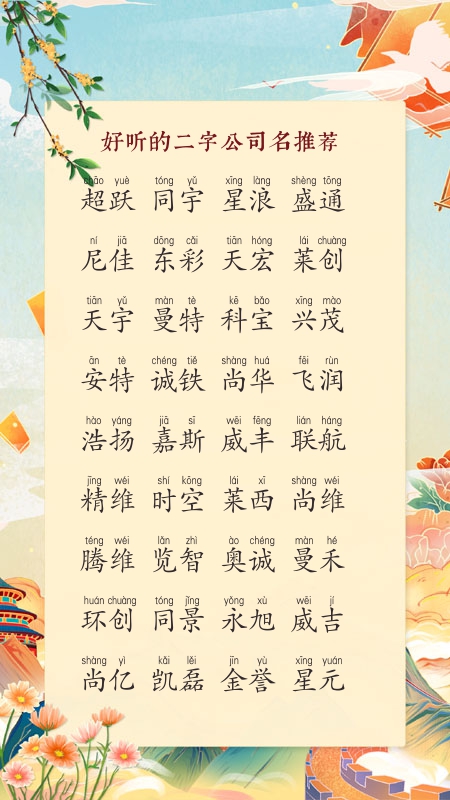 好听的二字公司名推荐
chāo yuè tóng yǔ xīng làng shèng tōng
超跃 同宇 星浪 盛通
ní jiā dōng cǎi tiān hóng lái chuàng
尼佳 东彩 天宏 莱创
tiān yǔ màn tè kē bǎo xīng mào
天宇 曼特 科宝 兴茂
ān tè chéng tiě shàng huá fēi rùn
安特 诚铁 尚华 飞润
hào yáng jiā sī wēi fēng lián háng
浩扬 嘉斯 威丰 联航
jīng wéi shí kōng lái xī shàng wéi
精维 时空 莱西 尚维
téng wéi lǎn zhì ào chéng màn hé
腾维 览智 奥诚 曼禾
huán chuàng tóng jǐng yǒng xù wēi jí
环创 同景 永旭 威吉
shàng yì kǎi lěi jīn yù xīng yuán
尚亿 凯磊 金誉 星元